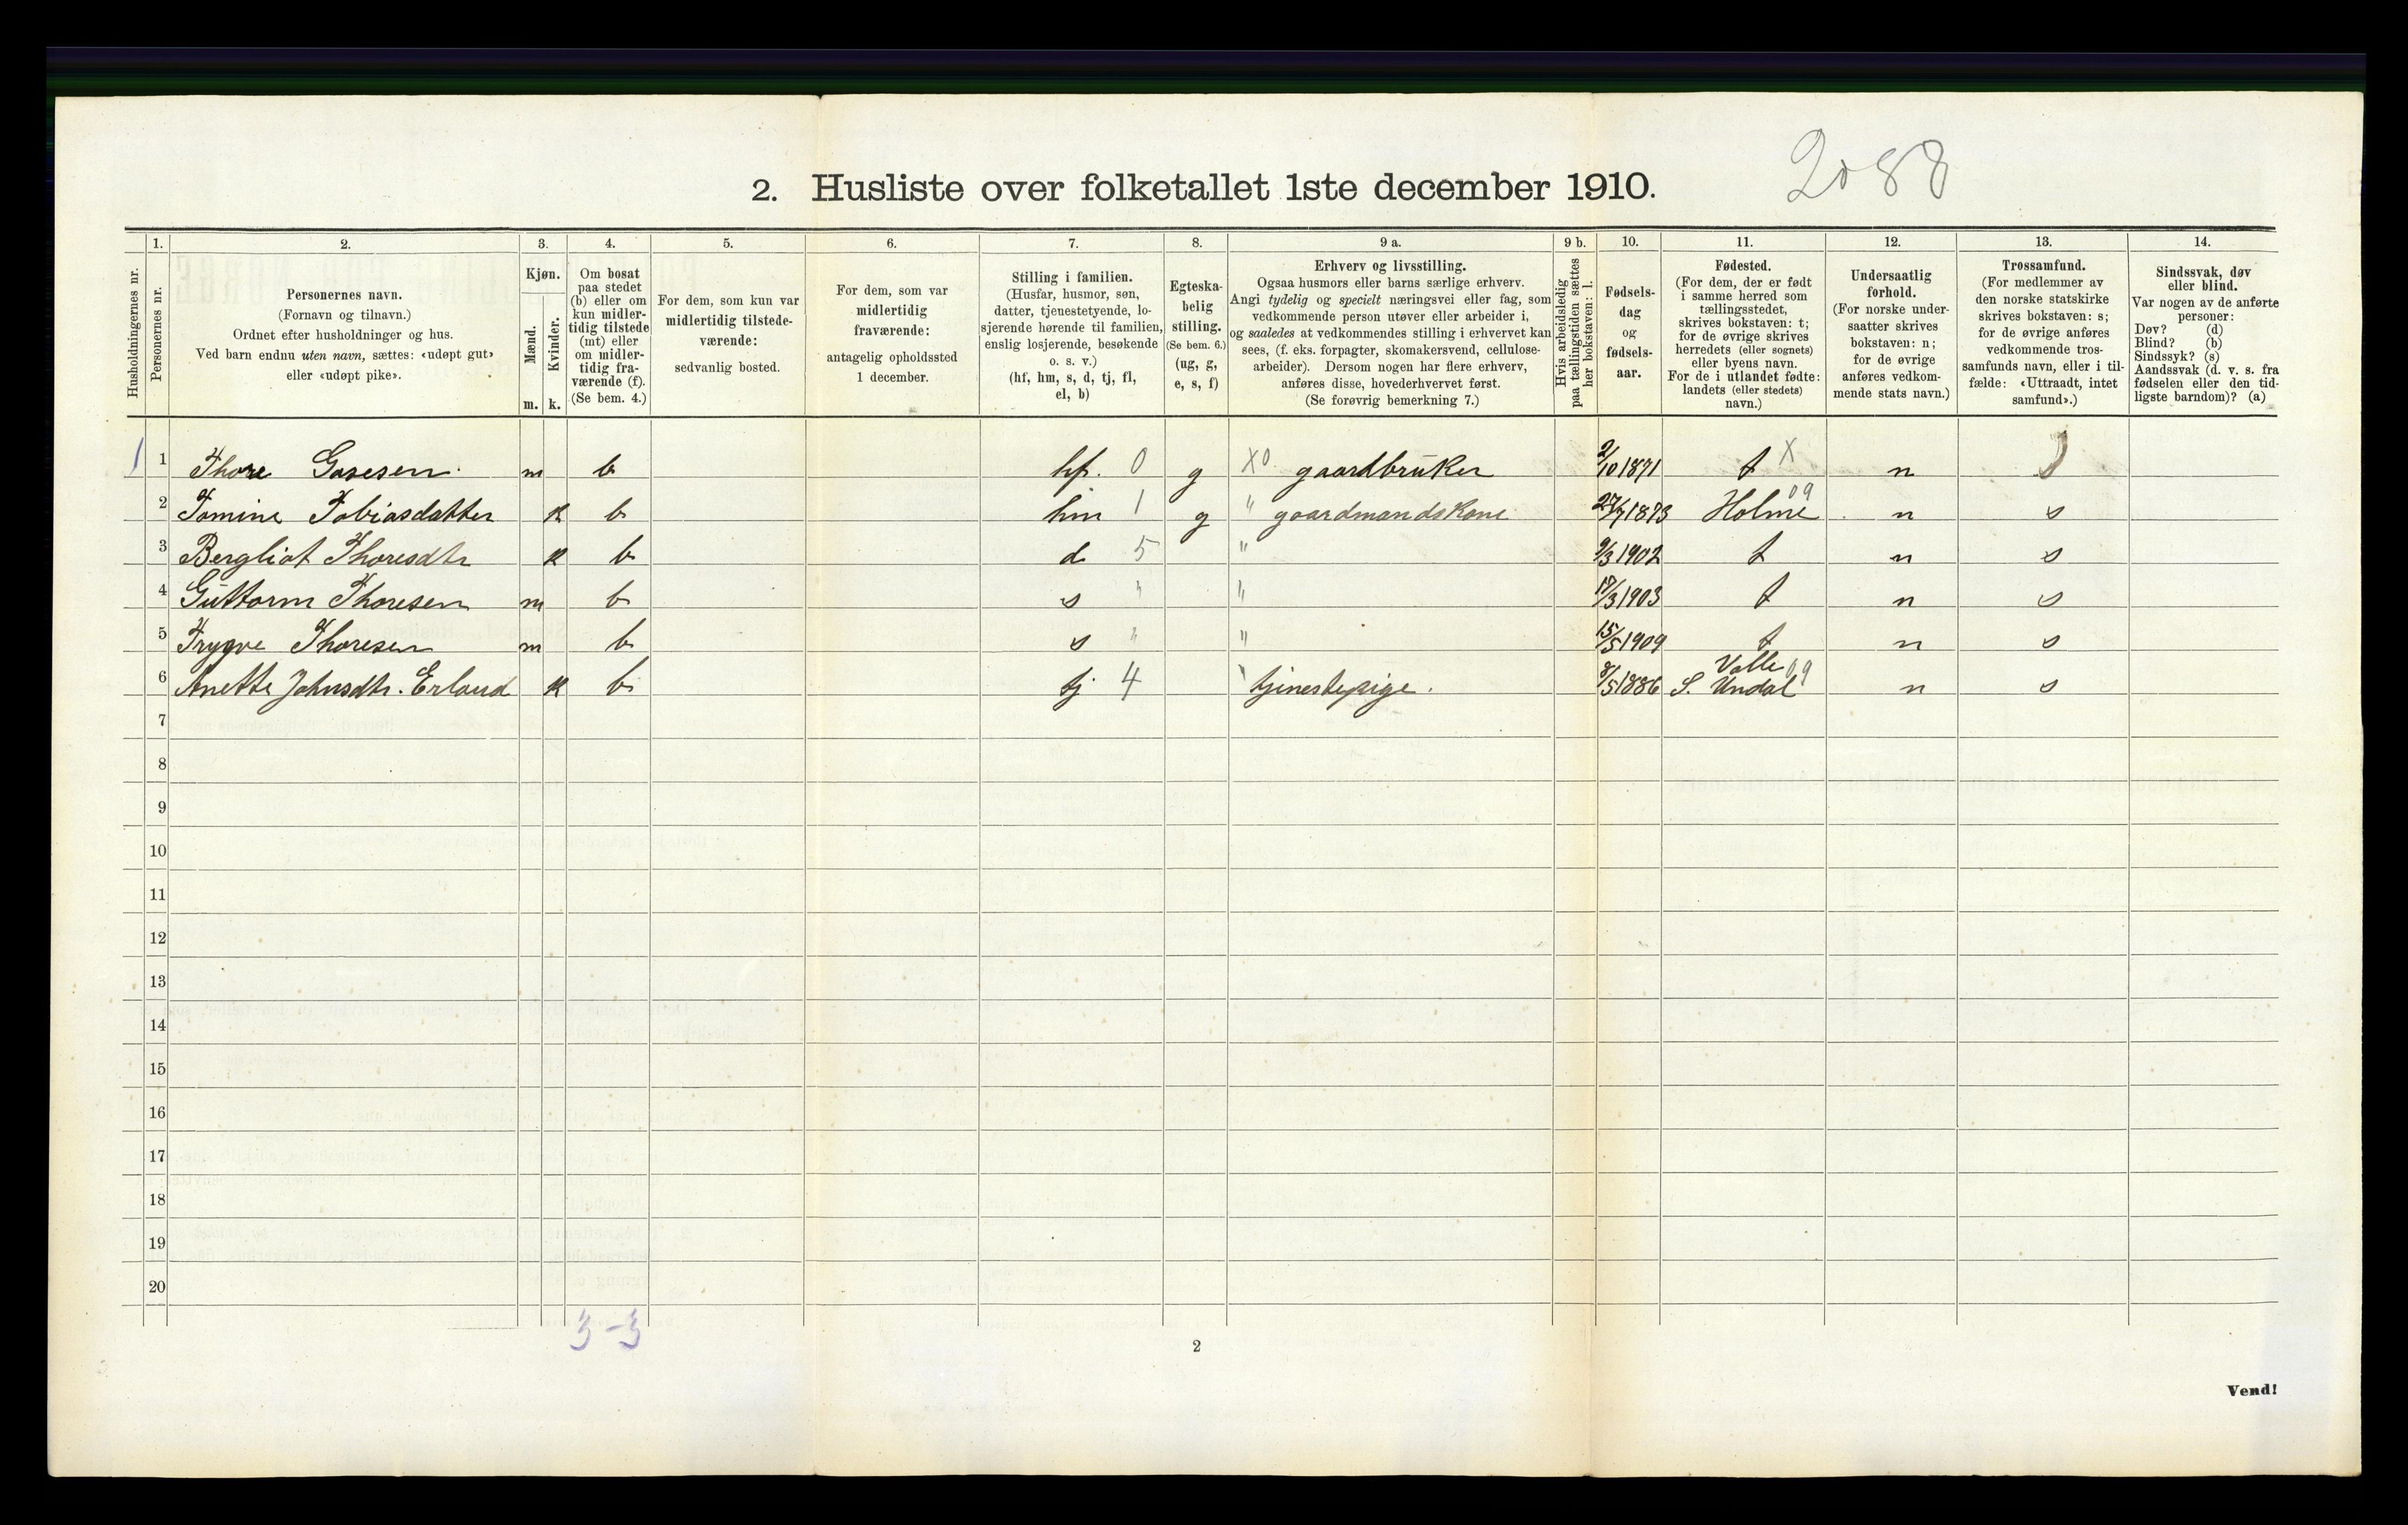 2088
2. Husliste over folketallet 1ste december 1910.
Husholdningernes nr.
1.
Personernes nr.
2.
Personernes navn.
(Fornavn og tilnavn.)
Ordnet efter husholdninger og hus.
Ved barn endnu uten navn, sættes: «udøpt gut»
eller «udøpt pike».
3.
Kjøn.
Mænd.
Kvinder.
m. k.
4.
Om bosat
paa stedet
(b) eller om
kun midler-
tidig tilstede
(mt) eller
om midler-
tidig fra-
værende (f).
(Se bem. 4.)
5.
For dem, som kun var
midlertidig tilstede-
værende:
sedvanlig bosted.
6.
For dem, som var
midlertidig
fraværende:
antagelig opholdssted
1 december.
7.
Stilling i familien.
(Husfar, husmor, søn,
datter, tjenestetyende, lo-
sjerende hørende til familien,
enslig losjerende, besøkende
o. s. v.)
(hf, hm, s, d, tj, fl,
el, b)
8.
Egteska-
belig
stilling.
(Se bem. 6.)
(ug, g,
e, s, f)
9 a.
Erhverv og livsstilling.
Ogsaa husmors eller barns særlige erhverv.
Angi tydelig og specielt næringsvei eller fag, som
vedkommende person utøver eller arbeider i,
og saaledes at vedkommendes stilling i erhvervet kan
sees, (f. eks. forpagter, skomakersvend, cellulose-
arbeider). Dersom nogen har flere erhverv,
anføres disse, hovederhvervet først.
(Se forøvrig bemerkning 7.)
9 b.
Hvis arbeidsledig
paa tællingstiden sættes
her bokstaven: l.
10.
Fødsels-
dag
og
fødsels-
aar.
11.
Fødested.
(For dem, der er født
i samme herred som
tællingsstedet,
skrives bokstaven: t;
for de øvrige skrives
herredets (eller sognets)
eller byens navn.
For de i utlandet fødte:
landets (eller stedets)
navn.)
12.
Undersaatlig
forhold.
(For norske under-
saatter skrives
bokstaven: n;
for de øvrige
anføres vedkom-
mende stats navn.)
13.
Trossamfund.
(For medlemmer av
den norske statskirke
skrives bokstaven: s;
for de øvrige anføres
vedkommende tros-
samfunds navn, eller i til-
fælde: «Uttraadt, intet
samfund».)
14.
Sindssvak, døv
eller blind.
Var nogen av de anførte
personer:
Døv? (d)
Blind? (b)
Sindssyk? (s)
Aandssvak (d. v. s. fra
fødselen eller den tid-
ligste barndom)? (a)
1 1 Thore Gasesen m b hf. 0 g X0 gaardbruker 2/10 1871 t X n s
2 Tomine Tobiasdatter k b hm 1 g " gaardmandskone 27/7 1873 Holme 09 n s
3 Bergliot Thoresdtr k b d 5 " 9/3 1902 t n s
4 Guttorm Thoresen m b s " " 17/3 1903 t n s
5 Trygve Thoresen m b s " " 15/5 1909 t n s
6 Anette Johnsdtr. Erland k b tj 4 " tjenestepige. 8/5 1886 Valle 09 S. Undal n s
7
8
9
10
11
12
13
14
15
16
17
18
19
20
3-3
2
Vend!